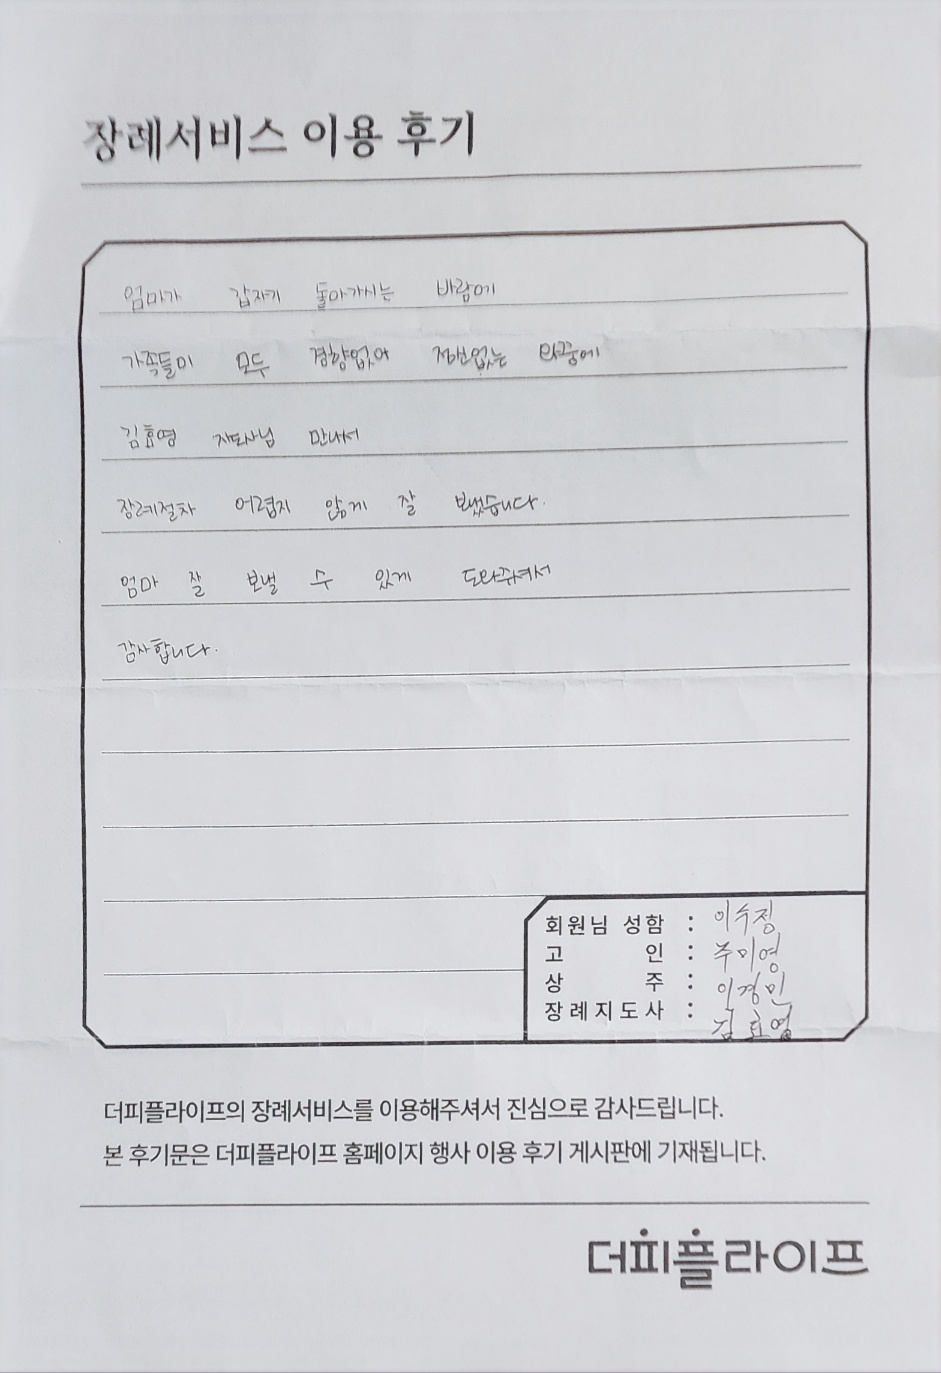 장례서비스 이용 후기
엄마가 갑자기 돌아가시는 바람에
가족들이 모두 경향없어 정신없는 와중에
김효영 지도사님 만나서
장례절차 어렵지 않게 잘 보냈습니다.
엄마 잘 보낼 수 있게 도와주셔서
감사합니다.
회원님 성함 : 이수정
고 인 : 주미영
상 주 : 이경민
장례지도사 : 김효영
더피플라이프의 장례서비스를 이용해주셔서 진심으로 감사드립니다.
본 후기문은 더피플라이프 홈페이지 행사 이용 후기 게시판에 기재됩니다.
더피플라이프